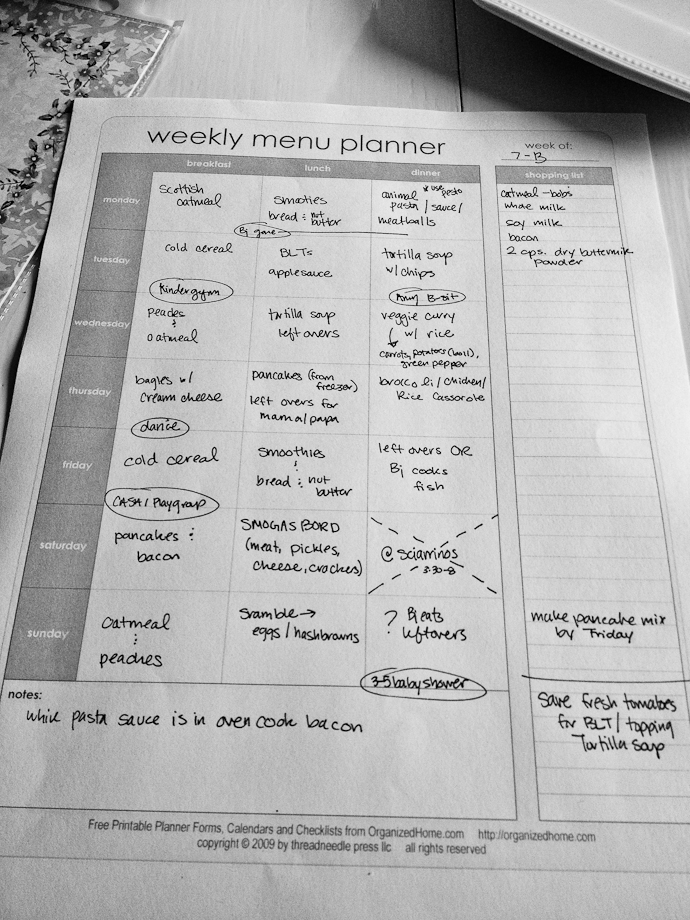 weekly menu planner
week of:
7-13
breakfast lunch dinner
shopping list
monday
Scottish
oatmeal
Smoties
bread : nut
butter
animal use pesto
pasta / sauce /
meatballs
Bj gone
tuesday
cold cereal
BLTs
applesauce
tortilla soup
w/ chips
Kindergym
wednesday
peades
&
oatmeal
tortilla soup
left overs
veggie curry
w/ rice
carrots, potatoes (boil),
green pepper
thursday
bagles w/
cream cheese
pancakes (from
freezer)
left overs for
mama/papa
broccoli/chicken/
Rice Casserole
dance
friday
cold cereal
smoothies
bread : nut
buttor
left overs OR
Bj cooks
fish
CASA / Playgroup
saturday
pancakes :
bacon
SMOGASBORD
(meat, pickles,
cheese, crackes)
@ sciarrinos
3:30-8
sunday
oatmeal
:
peaches
Sramble →
eggs / hashbrowns
? Bj eats
leftovers
3-5 baby shower
oatmeal - bobs
whole milk
soy milk
bacon
2 cps. dry buttermilk
powder
make pancake mix
by Friday
Save fresh tomatoes
for BLT / topping
Tortilla Soup
notes:
while pasta sauce is in oven cook bacon
Free Printable Planner Forms, Calendars and Checklists from OrganizedHome.com http://organizedhome.com
copyright © 2009 by threadneedle press llc all rights reserved